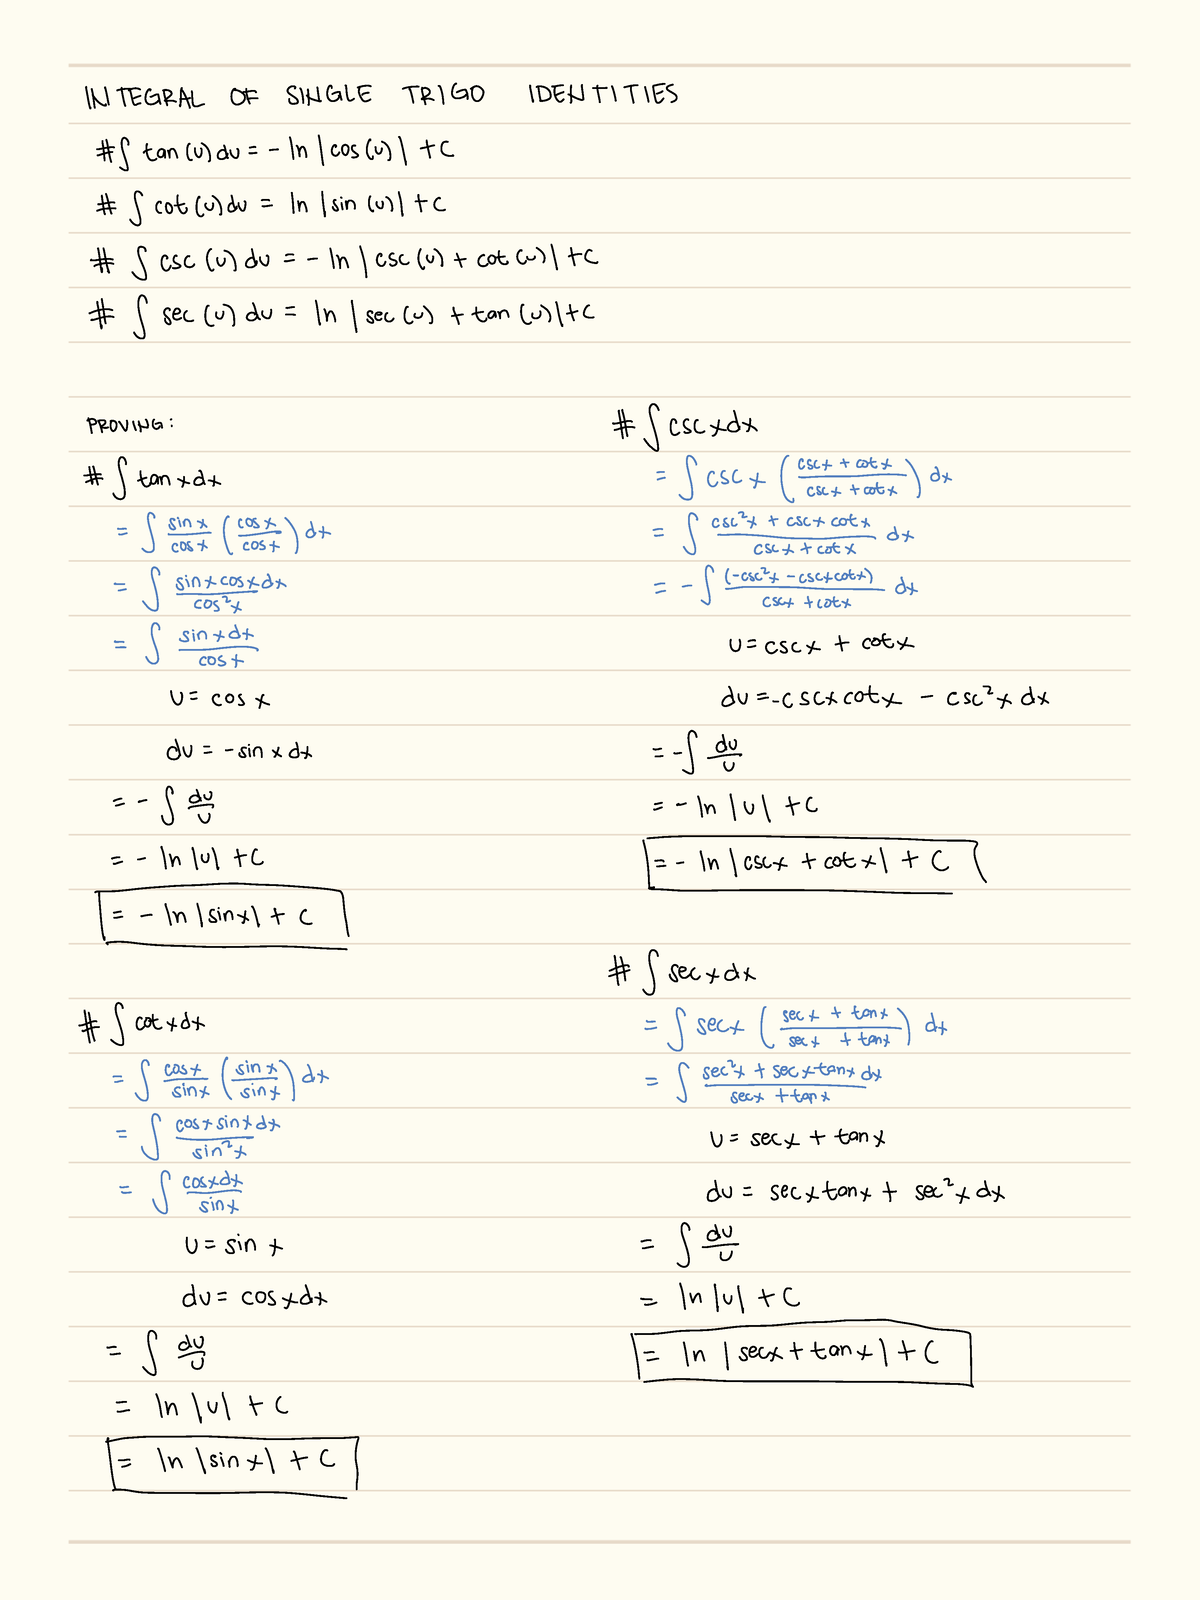 INTEGRAL OF SINGLE TRIGO IDENTITIES
# ∫ tan (u) du = - ln |cos (u)| + C
# ∫ cot (u) du = ln |sin (u)| + C
# ∫ csc (u) du = - ln | csc (u) + cot (u)| + C
# ∫ sec (u) du = ln | sec (u) + tan (u)| + C
PROVING:
# ∫ tan x dx
= ∫ sin x / cos x (cos x / cos x) dx
= ∫ sin x cos x dx / cos²x
= ∫ sin x dx / cos x
u = cos x
du = - sin x dx
= - ∫ du / u
= - ln |u| + C
= - ln |sin x| + C
# ∫ cot x dx
= ∫ cos x / sin x (sin x / sin x) dx
= ∫ cos x sin x dx / sin²x
= ∫ cos x dx / sin x
u = sin x
du = cos x dx
= ∫ du / u
= ln |u| + C
= ln |sin x| + C
# ∫ csc x dx
= ∫ csc x (csc x + cot x / csc x + cot x) dx
= ∫ csc²x + csc x cot x / csc x + cot x dx
= - ∫ (-csc²x - csc x cot x) / csc x + cot x dx
u = csc x + cot x
du = -csc x cot x - csc²x dx
= - ∫ du / u
= - ln |u| + C
= - ln |csc x + cot x| + C
# ∫ sec x dx
= ∫ sec x (sec x + tan x / sec x + tan x) dx
= ∫ sec²x + sec x tan x dx / sec x + tan x
u = sec x + tan x
du = sec x tan x + sec²x dx
= ∫ du / u
= ln |u| + C
= ln | sec x + tan x | + C